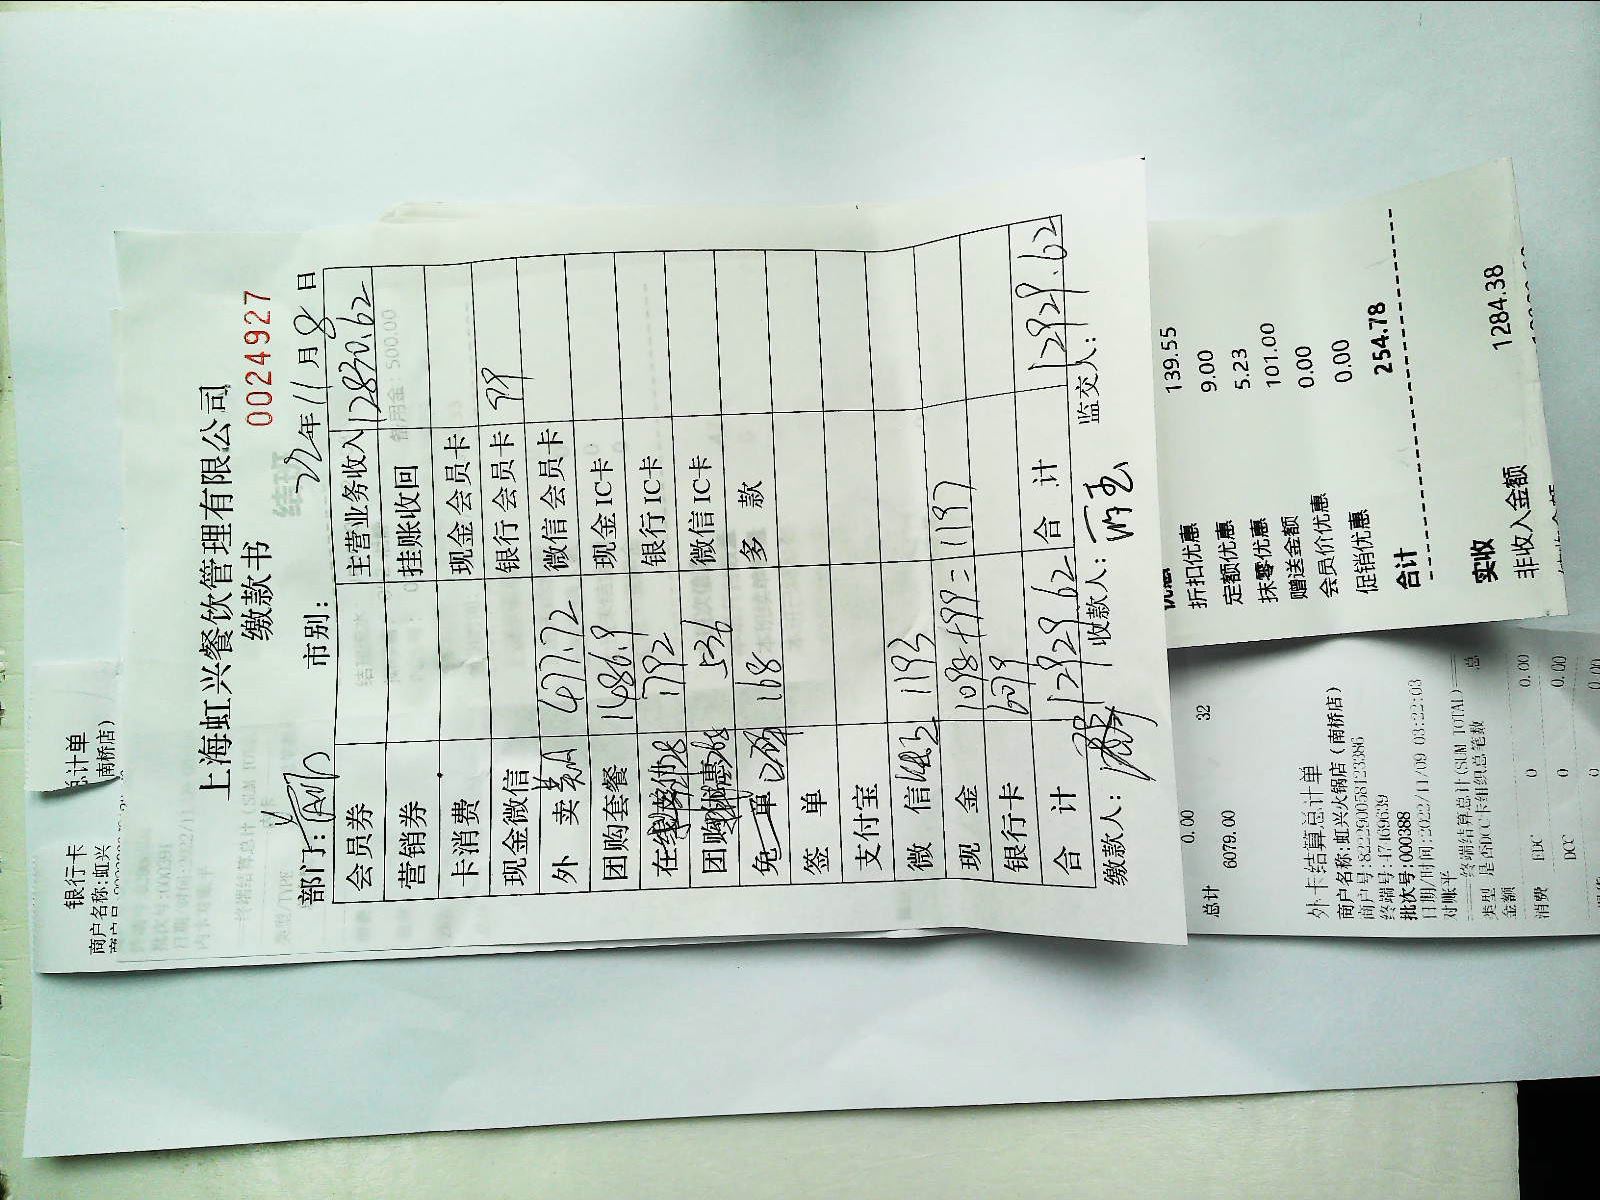 银行卡
总计单
商户名称:虹兴
南桥店)
上海虹兴餐饮管理有限公司
缴款书
0024927
部门:
市别:
22年11月8日
会员券 主营业务收入 12830.62
营销券 挂账收回
卡消费 现金会员卡
现金微信 银行会员卡 99
外卖 477.72 微信会员卡
团购套餐 1486.9 现金IC卡
1792 银行IC卡
536 微信IC卡
免单 168 多款
签单
支付宝
微信 1193
现金 1098+99=1197
银行卡 6079
合计 12929.62 合计 12929.62
缴款人:
收款人:
监交人:
折扣优惠 139.55
定额优惠 9.00
抹零优惠 5.23
赠送金额 101.00
会员价优惠 0.00
促销优惠 0.00
合计 254.78
实收 1284.38
非收入金额
0.00
总计 32
6079.00
外卡结算总计单
商户名称:虹兴火锅店(南桥店)
商户号:822290058123386
终端号:47469639
批次号:000388
日期/时间:2022/11/09 03:22:03
对账平
终端结算总计(SUM TOTAL)
类型 是否DCC 卡组织 总笔数 总
金额
EDC
消费 0 0.00
DCC
0 0.00